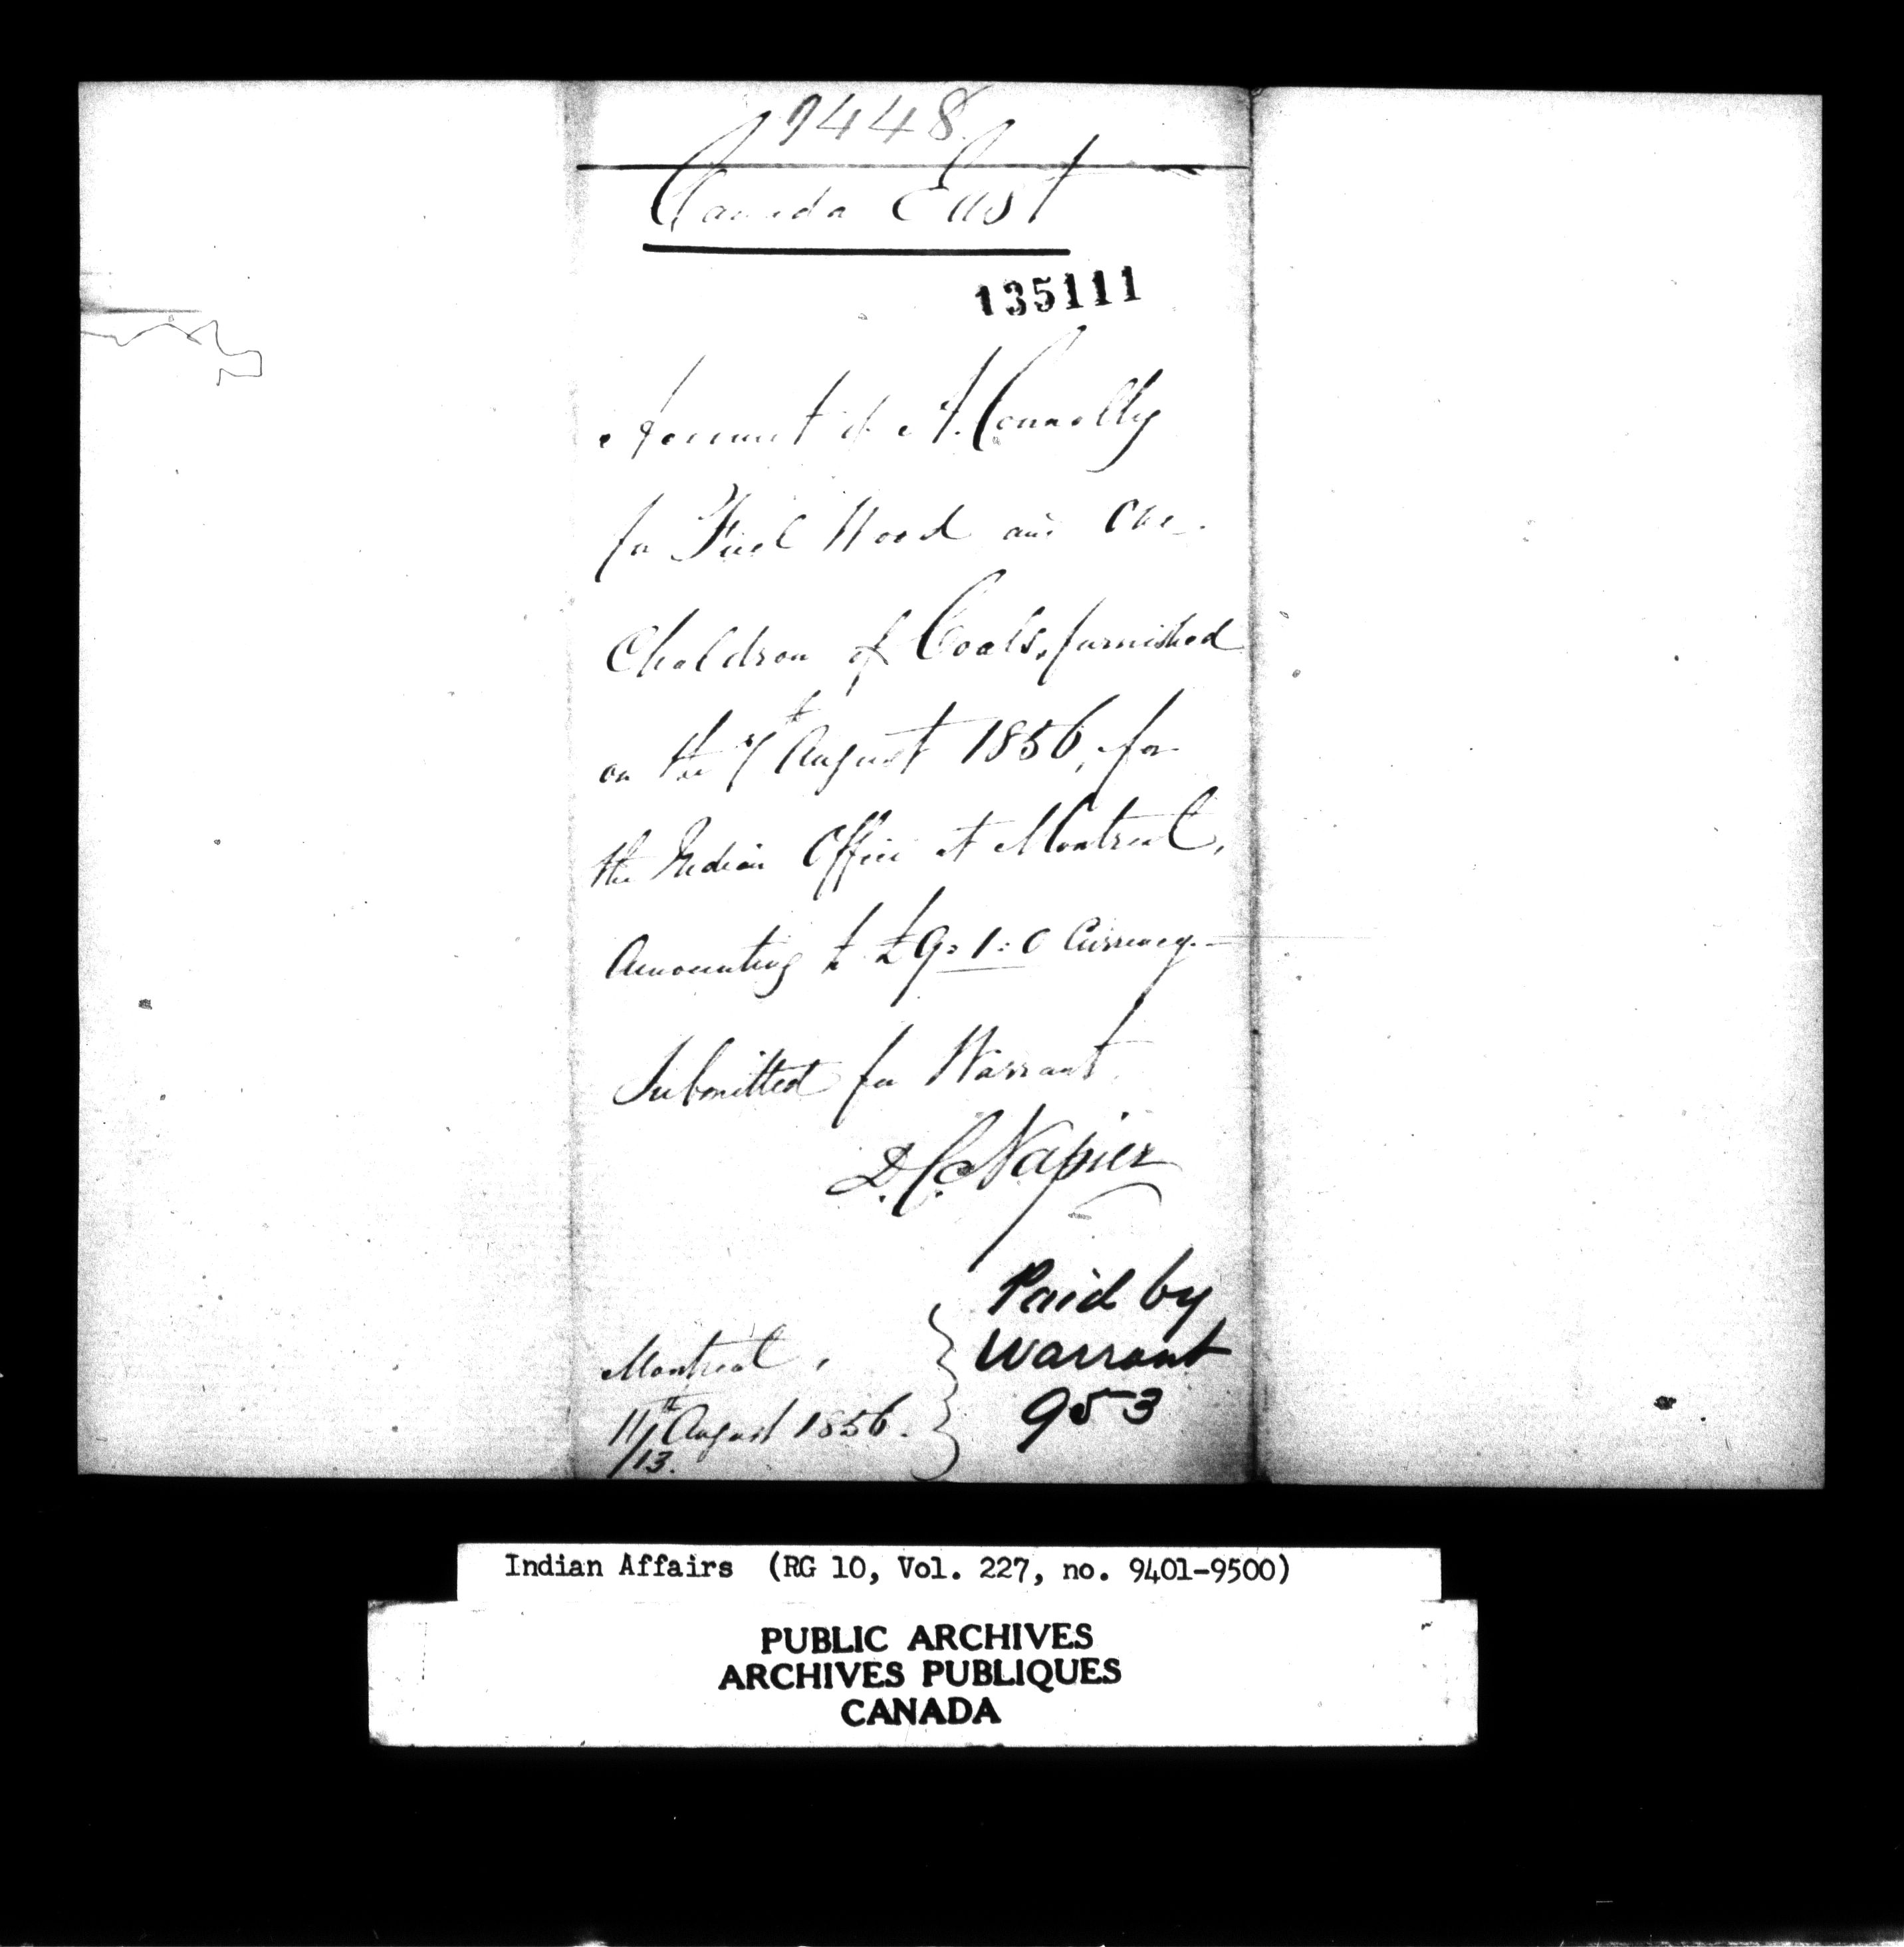 9448
Canada East
135111
Account of A. Connolly
for Fuel Wood and One
Chaldron of Coals, furnished
on the 7th August 1856, for
the Indian Office at Montreal,
Amounting to £9:1:0 Currency.
Submitted for Warrant
D. C. Napier
Paid by
Warrant
953
Montreal,
11th August 1856.
/13.
Indian Affairs (RG 10, Vol. 227, no. 9401-9500)
PUBLIC ARCHIVES
ARCHIVES PUBLIQUES
CANADA